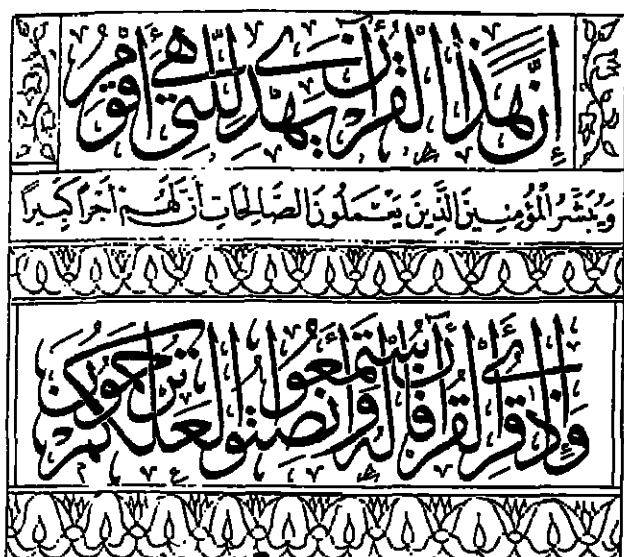 إِنَّ هَٰذَا الْقُرْآنَ يَهْدِي لِلَّتِي هِيَ أَقْوَمُ
وَيُبَشِّرُ الْمُؤْمِنِينَ الَّذِينَ يَعْمَلُونَ الصَّالِحَاتِ أَنَّ لَهُمْ أَجْرًا كَبِيرًا
وَإِذَا قُرِئَ الْقُرْآنُ فَاسْتَمِعُوا لَهُ وَأَنصِتُوا لَعَلَّكُمْ تُرْحَمُونَ